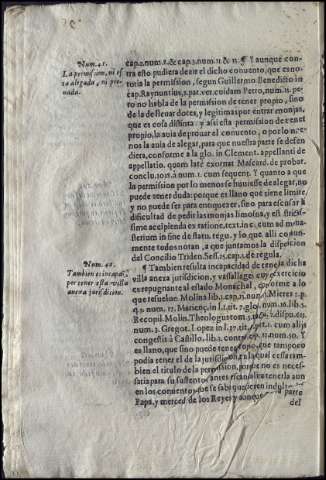 Num. 41.
La permission, ni es
tà alegada, ni pro
uada.
Num. 42.
Tambien es incapaz,
por tener esta villa
anexa jurisdicion.
cap. 2. num. 8. & cap. 3. num. 11. & ¶ Y aunque con
tra esto pudiera dezir el dicho conuento, que es no
toria la permission, segun Guillermo Benedicto in
cap. Raynuntius, 2. par. ver. cuidam Petro, num. 11. pe
ro no habla de la permission de tener propio, sino
de la de lleuar dotes, y legitimas por entrar monjas,
que es cosa distinta: y assi esta permission de tener
propio, la auia de prouar el conuento, o por lo me-
nos la auia de alegar, para que nuestra parte se defen
diera, conforme a la glo. in Clement. appellanti de
appellatio. quem late exornat Mascard. de probat.
conclu. 101. num. 1. cum sequent. Y quanto a que
la permission por lo menos se huuiesse de alegar, no
puede tener duda: porque es llano que tiene limite,
y no puede ser para enriquecer, sino para escusar la
dificultad de pedir las monjas limosna, y est strictis-
sime accipienda ex ratione, text. in c. cum ad mona-
sterium in fine de statu. regu. y lo que alli común-
mente todos notan, a que juntamos la disposicion
del Concilio Triden. Sess. 25. cap. 2. de regula.
¶ Tambien resulta incapacidad de tener la dicha
villa anexa jurisdicion, y vassallage, cuyo exercicio
es repugnante al estado Monachal, conforme a lo
que resueluen Molina lib. 1. cap. 13. num.
q. num. 11. Marienç. in l. 1. tit. 7. glo. num. 10. lib. 5.
Recopil. Molin. Theologus tom. disput.
num. 3. Gregor. Lopez in l. 17. tit. cum alijs
congestis à Castillo, lib. 2. contro. cap. 11. num. 30. Y
es llano, que sino puede tener propio, que tampoco
podia tener el de la jurisdicion, la qual cessa tam-
bien el titulo de la permission, porque no es neces-
saria para su sustento: antes escandaliza tenerla aun
en los conuentos, que se sabe que tienen indulto del
Papa, y merced de los Reyes: y aunque por parte
del